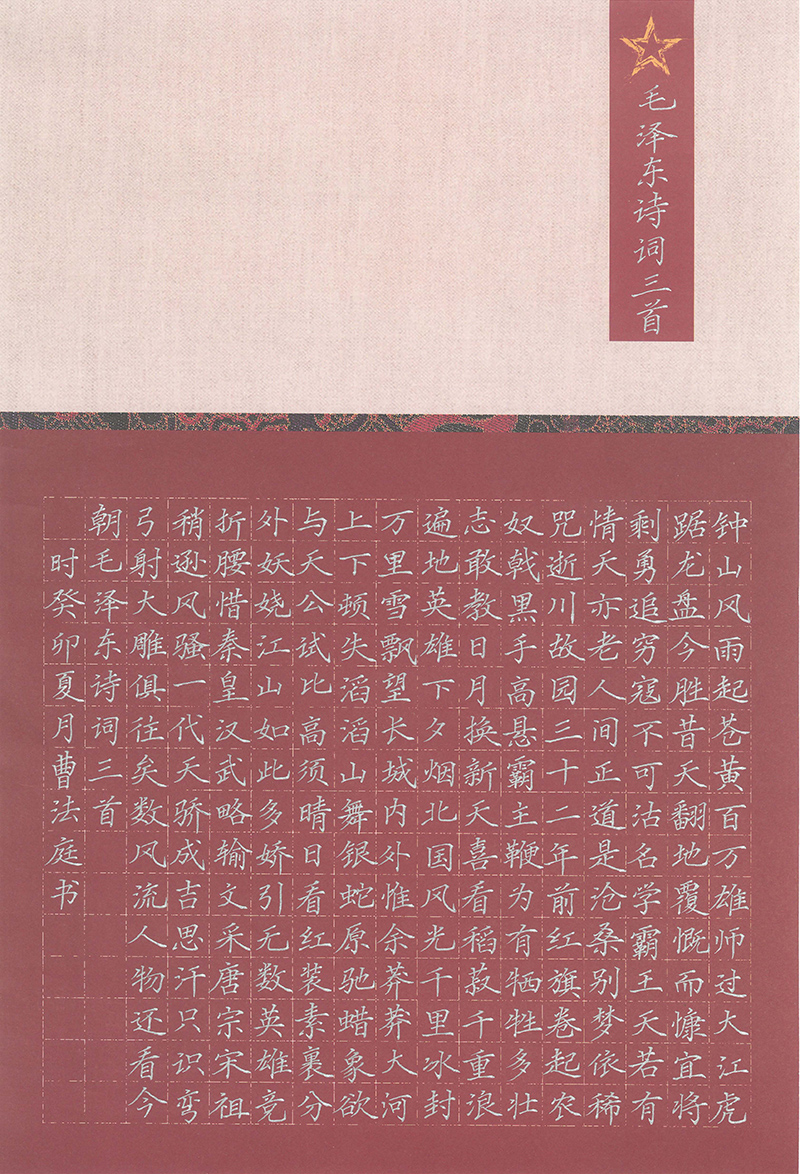 毛泽东诗词三首
钟山风雨起苍黄百万雄师过大江虎
踞龙盘今胜昔天翻地覆慨而慷宜将
剩勇追穷寇不可沽名学霸王天若有
情天亦老人间正道是沧桑别梦依稀
咒逝川故园三十二年前红旗卷起农
奴戟黑手高悬霸主鞭为有牺牲多壮
志敢教日月换新天喜看稻菽千重浪
遍地英雄下夕烟北国风光千里冰封
万里雪飘望长城内外惟余莽莽大河
上下顿失滔滔山舞银蛇原驰蜡象欲
与天公试比高须晴日看红装素裹分
外妖娆江山如此多娇引无数英雄竞
折腰惜秦皇汉武略输文采唐宗宋祖
稍逊风骚一代天骄成吉思汗只识弯
弓射大雕俱往矣数风流人物还看今
朝毛泽东诗词三首
时癸卯夏月曹法庭书